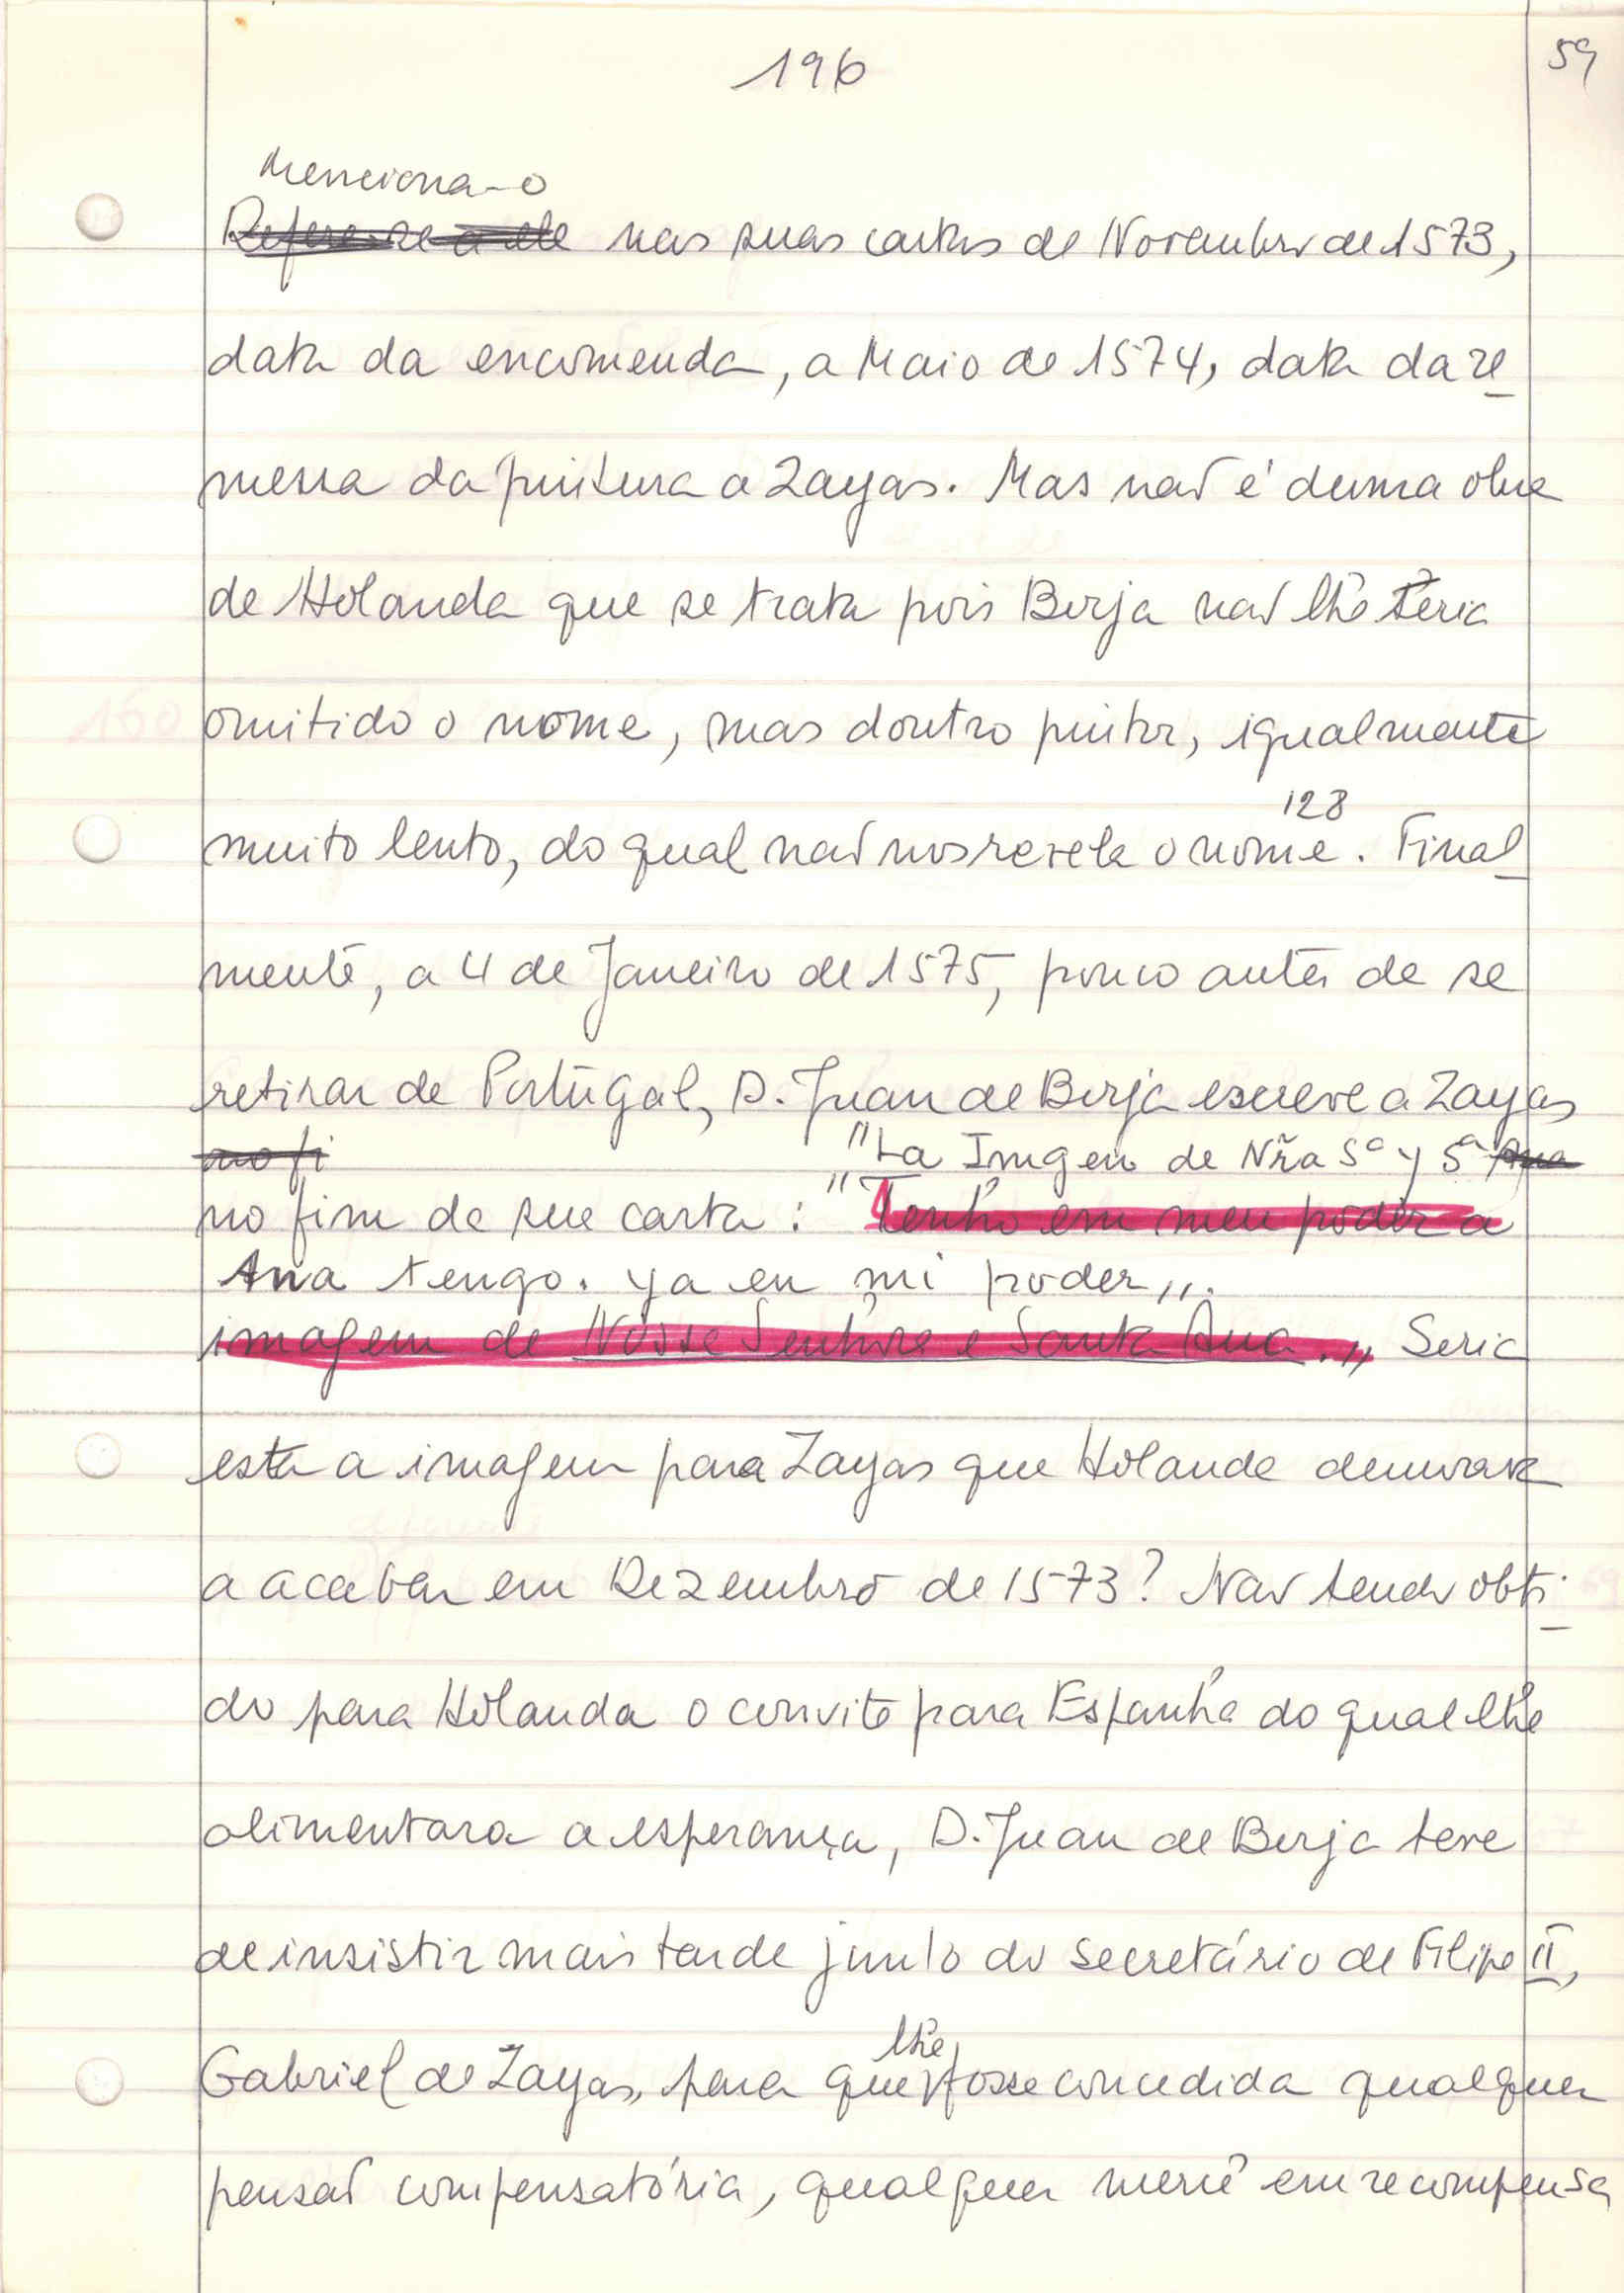 196
59
Menciona-o
Refere-se a ele nas suas cartas de Novembro de 1573,
data da encomenda, a Maio de 1574, data da re
messa da pintura a Zayas. Mas não é duma obra
de Holanda que se trata pois Borja não lhe teria
omitido o nome, mas doutro pintor, igualmente
128
muito lento, do qual não nos revela o nome. Final
mente, a 4 de Janeiro de 1575, pouco antes de se
retirar de Portugal, D. Juan de Borja escreve a Zayas
no fi "La Imgen de Nr̃a Sª y Sª Ana
no fim de sua carta : "Tenho em meu poder a
Ana tengo. ya en mi poder,,.
imagem de Nossa Senhora e Santa Ana.,, Seria
esta a imagem para Zayas que Holanda demorava
a acabar em Dezembro de 1573? Não tendo obti
do para Holanda o convite para Espanha do qual lhe
alimentara a esperança, D. Juan de Borja teve
de insistir mais tarde junto do secretário de Filipe II,
lhe
Gabriel de Zayas, para que fosse concedida qualquer
pensão compensatória, qualquer mercê em recompensa